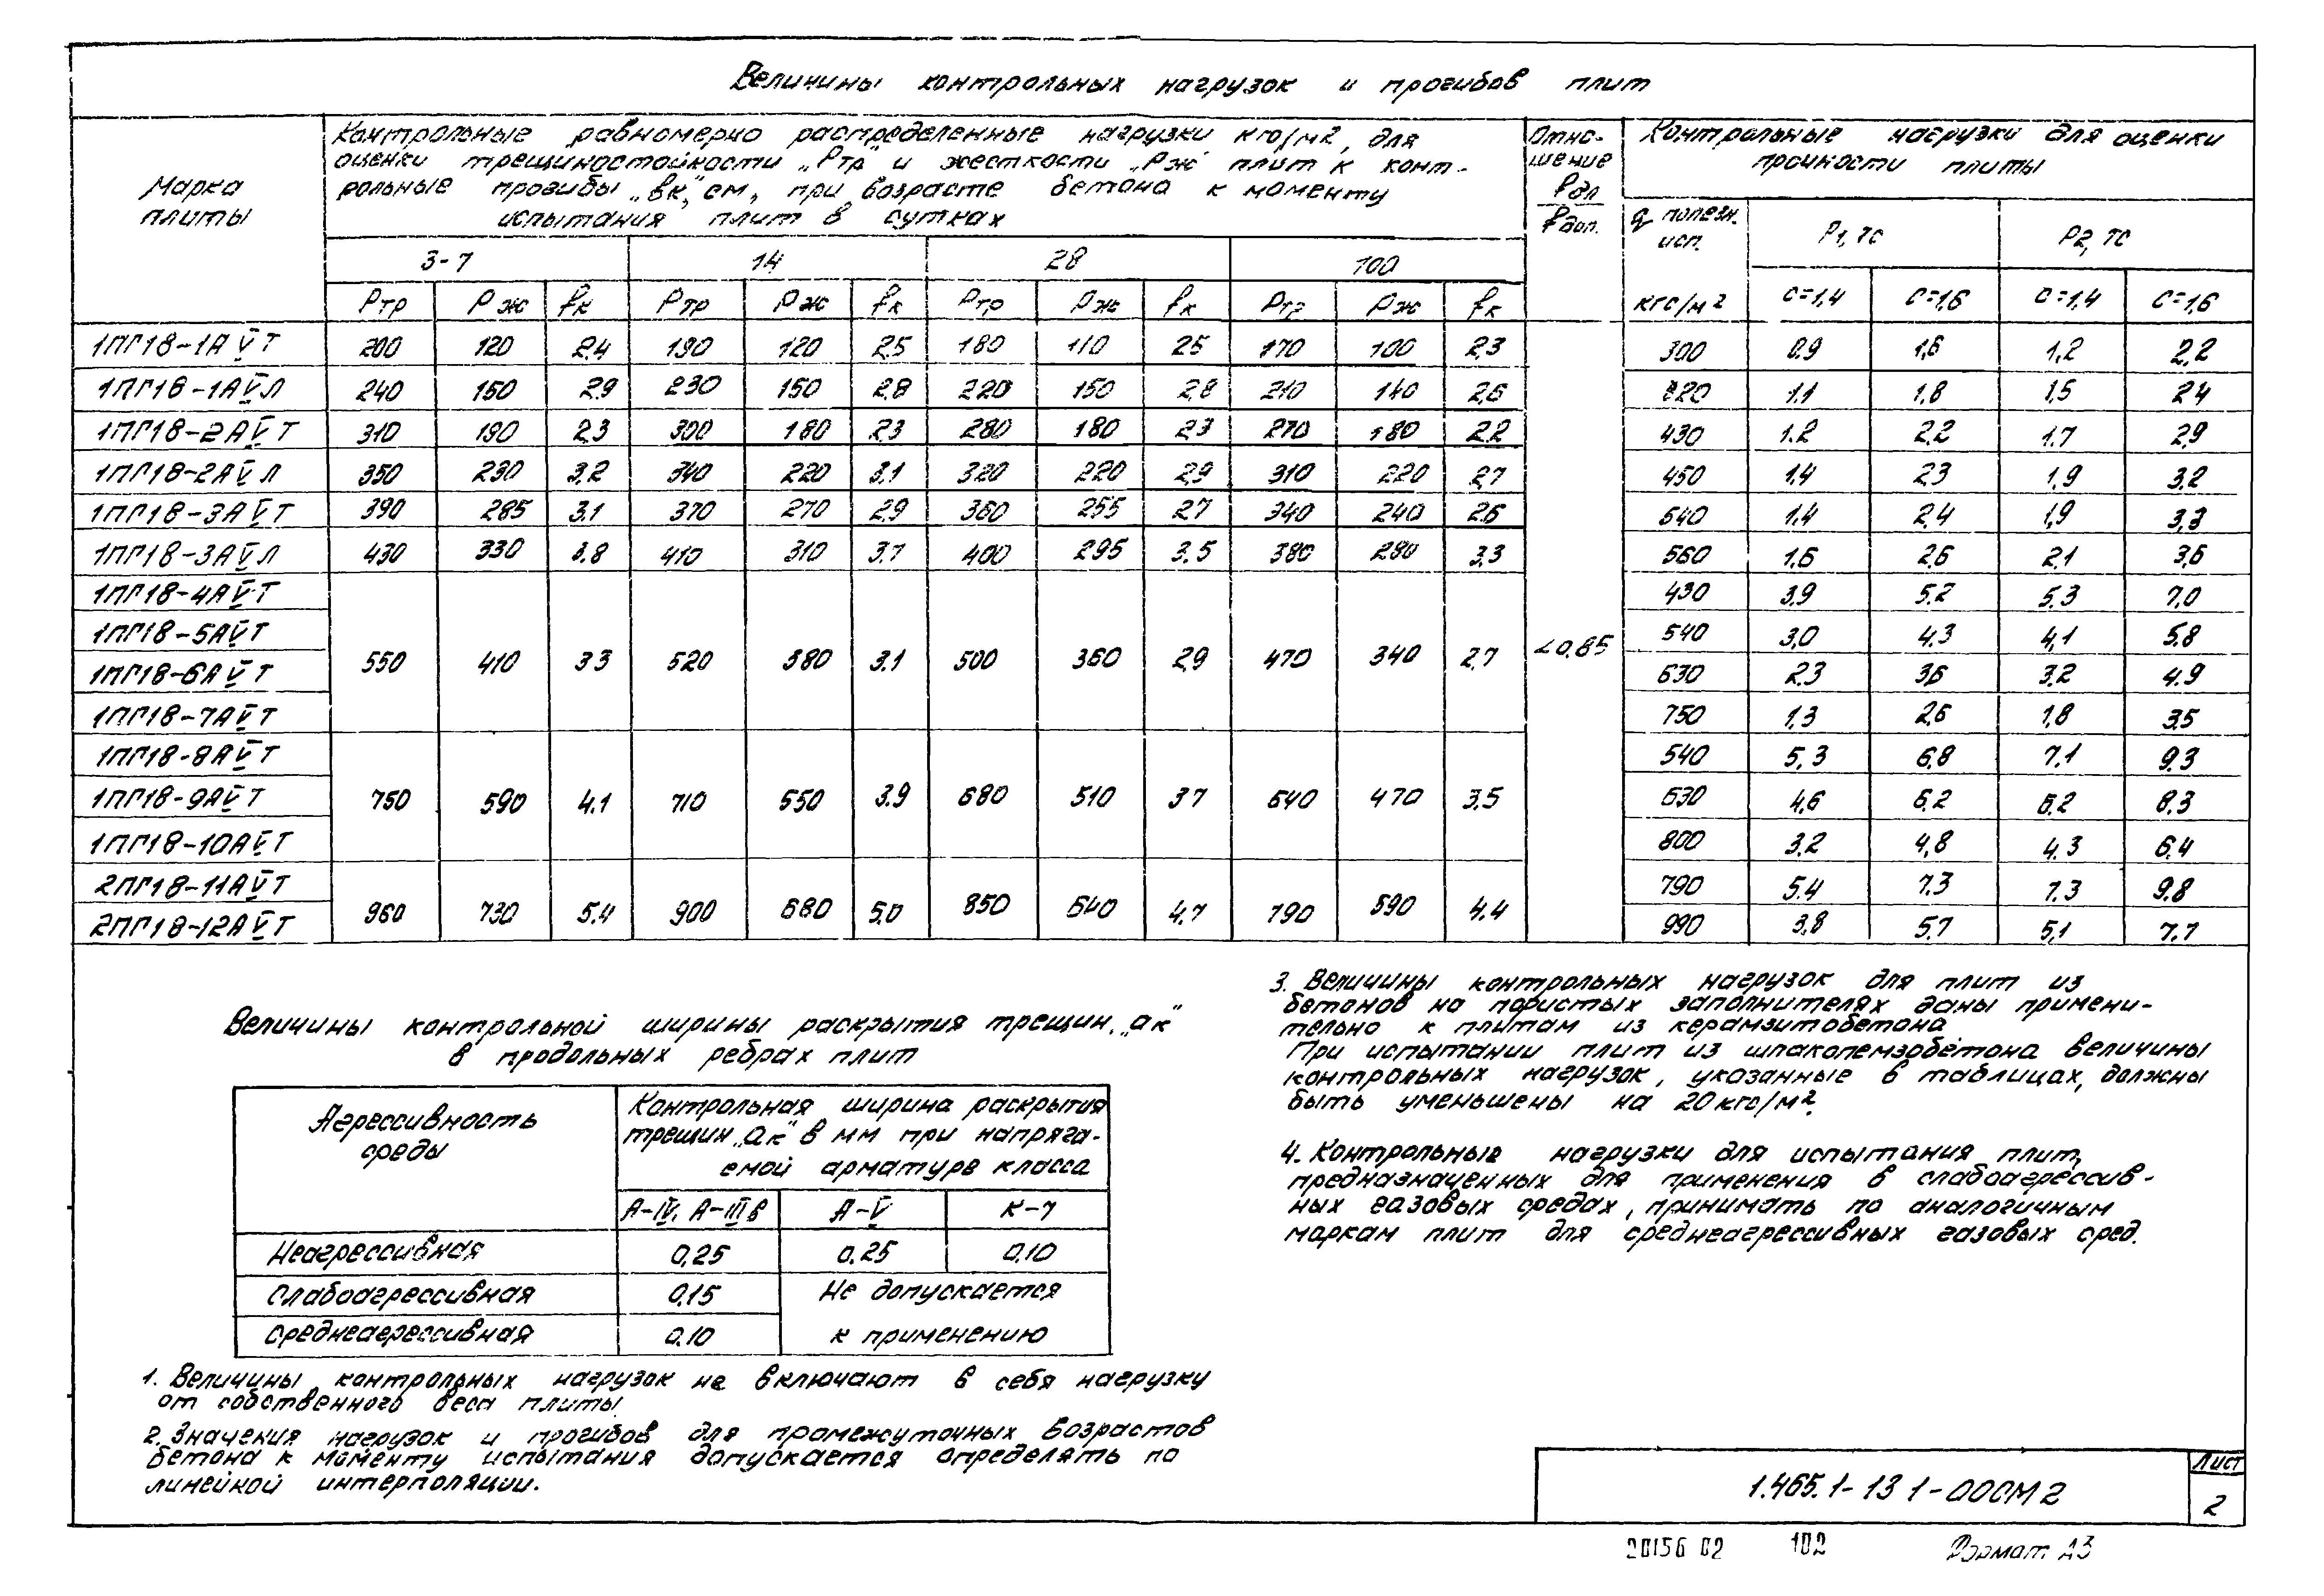 Величины контрольных нагрузок и прогибов плит
Марка плиты
Контрольные равномерно распределенные нагрузки кгс/м², для
оценки трещиностойкости „Ртр" и жесткости „Рж" плит к конт-
рольные прогибы „вк", см, при возрасте бетона к моменту
испытания плит в сутках
Отно-
шение
fдл
fдоп.
Контрольные нагрузки для оценки
прочности плиты
3-7 14 28 100
q полезн. исп. кгс/м²
Р1, тс Р2, тс
Ртр Рж fк Ртр Рж fк Ртр Рж fк Ртр Рж fк
с=1,4 с=1,6 с=1,4 с=1,6
1ПГ18-1АVТ 200 120 2.4 190 120 2.5 180 110 25 170 100 2,3 300 0.9 1,6 1,2 2,2
1ПГ18-1АVЛ 240 150 2.9 230 150 2,8 220 150 2,8 210 140 2,6 320 1.1 1,8 1,5 24
1ПГ18-2АVТ 310 190 2,3 300 180 2,3 280 180 23 270 180 2.2 430 1.2 2,2 1.7 2,9
1ПГ18-2АVЛ 350 230 3,2 340 220 3,1 320 220 2,9 310 220 2,7 450 1,4 23 1,9 3,2
1ПГ18-3АVТ 390 285 3,1 370 270 2,9 360 255 27 340 240 2,6 540 1,4 2,4 1,9 3,3
1ПГ18-3АVЛ 430 330 3.8 410 310 3,7 400 295 3.5 380 280 3,3 560 1,6 2,6 2,1 3,6
1ПГ18-4АVТ 430 3,9 5.2 5.3 7,0
1ПГ18-5АVТ 540 3,0 4.3 4,1 5.8
550 410 33 520 380 3.1 500 360 2,9 470 340 2,7 <0,85
1ПГ18-6АVТ 630 2,3 3,6 3.2 4.9
1ПГ18-7АVТ 750 1,3 2,6 1,8 3,5
1ПГ18-8АVТ 540 5,3 6,8 7,1 9.3
1ПГ18-9АVТ 750 590 4.1 710 550 3.9 680 510 37 640 470 3,5 630 4,6 6,2 6,2 8,3
1ПГ18-10АVТ 800 3,2 4,8 4,3 6.4
2ПГ18-11АVТ 790 5.4 7.3 7.3 9.8
960 730 5.4 900 680 5.0 850 640 4,7 790 590 4.4
2ПГ18-12АVТ 990 3,8 5.7 5,1 7.7
Величины контрольной ширины раскрытия трещин „ак"
в продольных ребрах плит
Агрессивность
среды
Контрольная ширина раскрытия
трещин „ак" в мм при напряга-
емой арматуре класса
А-IV, А-IIIв А-V К-7
Неагрессивная 0,25 0,25 0,10
Слабоагрессивная 0,15 Не допускается
Среднеагрессивная 0.10 к применению
1. Величины контрольных нагрузок не включают в себя нагрузку
от собственного веса плиты
2. Значения нагрузок и прогибов для промежуточных возрастов
бетона к моменту испытания допускается определять по
линейной интерполяции.
3. Величины контрольных нагрузок для плит из
бетонов на пористых заполнителях даны примени-
тельно к плитам из керамзитобетона
При испытании плит из шлакопемзобетона величины
контрольных нагрузок, указанные в таблицах, должны
быть уменьшены на 20 кгс/м².
4. Контрольные нагрузки для испытания плит,
предназначенных для применения в слабоагрессив-
ных газовых средах, принимать по аналогичным
маркам плит для среднеагрессивных газовых сред.
1.465.1-13 1-00СМ2
Лист
2
20156 02 102 Формат А3